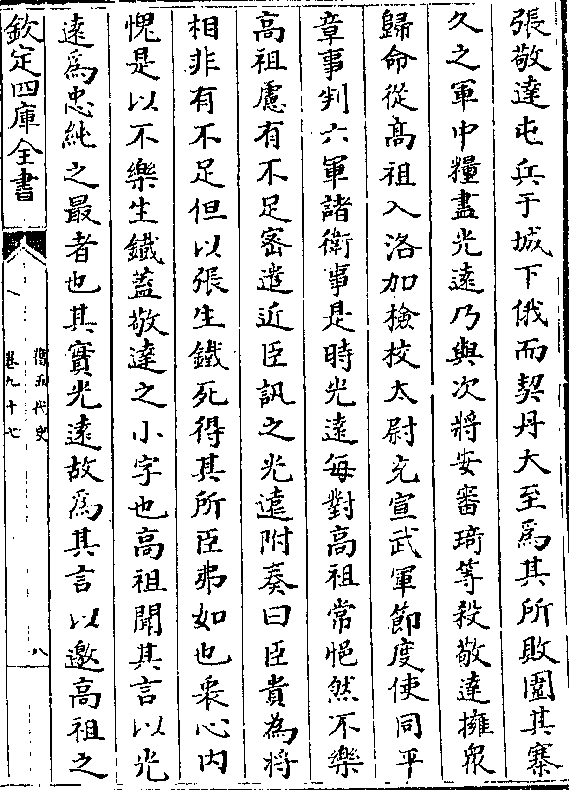 張敬達屯兵于城下俄而契丹大至為其所敗圍其寨
久之軍中糧盡光遠乃與次將安審琦等殺敬達擁眾
歸命從高祖入洛加檢校太尉充宣武軍節度使同平
章事判六軍諸衛事是時光遠每對高祖常悒然不樂
高祖慮有不足密遣近臣訊之光遠附奏曰臣貴為將
相非有不足但以張生鐵死得其所臣弗如也衷心内
愧是以不樂生鐵蓋敬達之小字也高祖聞其言以光
遠為忠純之最者也其實光遠故為其言以邀高祖之
欽定四庫全書
舊五代史
卷九十七
八